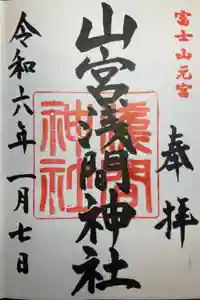 富士山元宮
奉拝
山宮浅間神社
浅間神社
令和六年一月七日